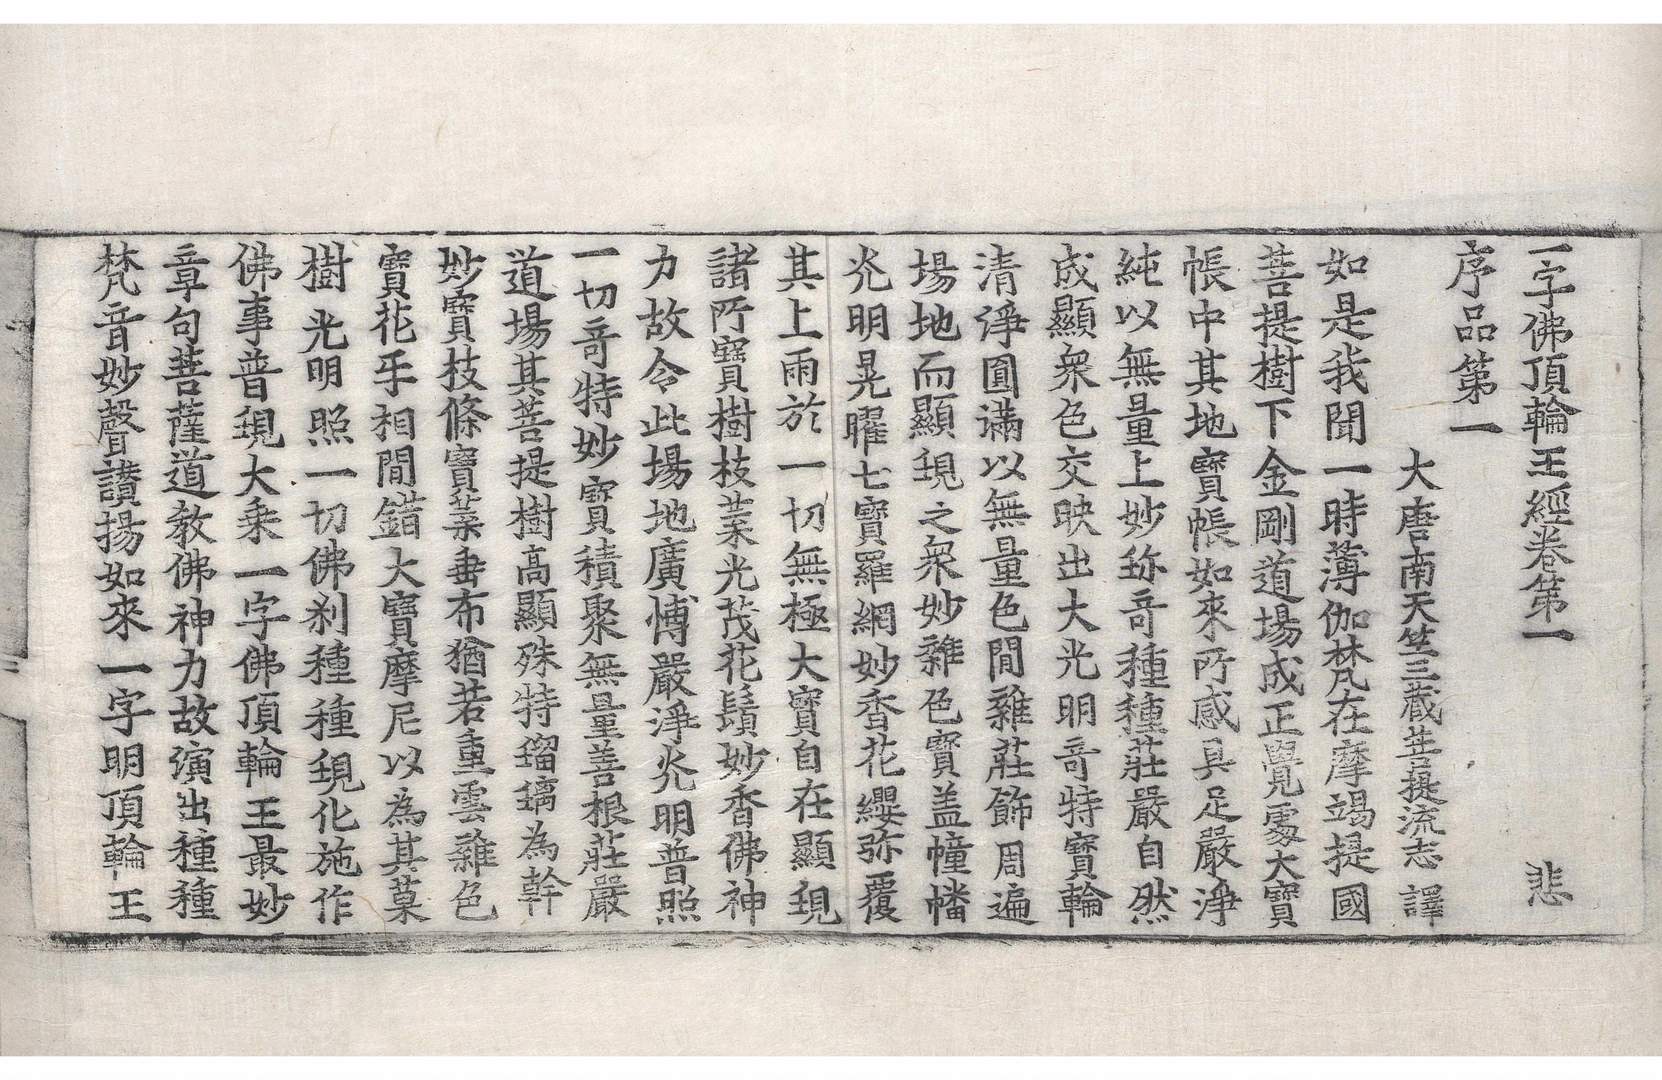 一字佛頂輪王經卷第一 悲
序品第一
大唐南天竺三藏菩提流志 譯
如是我聞一時薄伽梵在摩竭提國
菩提樹下金剛道場成正覺處大寶
帳中其地寶帳如來所感具足嚴淨
純以無量上妙珎竒種種莊嚴自然
成顯衆色交映出大光明竒特寶輪
清淨圓滿以無量色間雜莊飾周遍
場地而顯現之衆妙雜色寶盖幢幡
光明晃曜七寶羅網妙香花纓弥覆
其上雨於一切無極大寶自在顯現
諸所寶樹枝葉光茂花鬚妙香佛神
力故令此場地廣博嚴淨光明普照
一切竒特妙寶積聚無量善根莊嚴
道場其菩提樹高顯殊特瑠璃為幹
妙寶枝條寶葉垂布猶若重雲雜色
寶花乎相間錯大寶摩尼以為其菓
樹光明照一切佛刹種種現化施作
佛事普現大乗一字佛頂輪王最妙
章句菩薩道教佛神力故演出種種
梵音妙聲讃揚如來一字明頂輪王